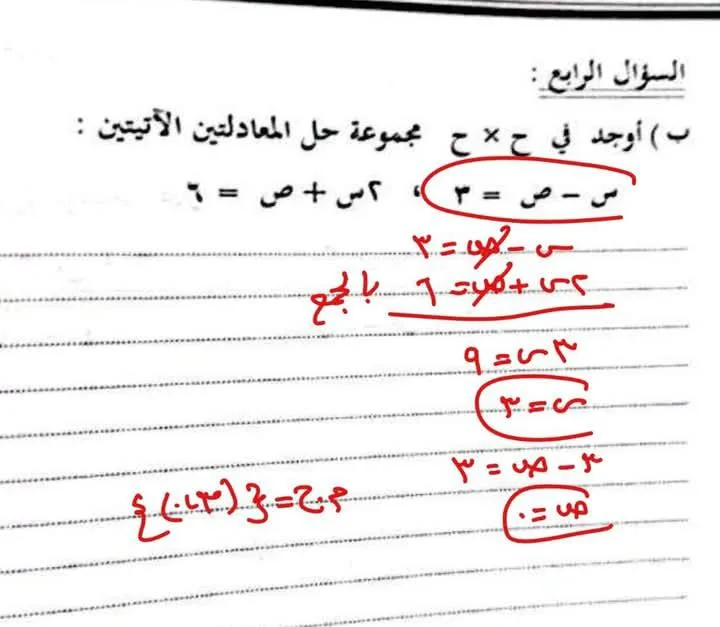 السؤال الرابع :
ب) أوجد في ح × ح مجموعة حل المعادلتين الآتيتين :
س – ص = ٣ ، ٢س + ص = ٦
س – ص = ٣
٢س + ص = ٦ بالجمع
٣س = ٩
س = ٣
٣ – ص = ٣
ص = ٠
م.ح = {(٣،٠)}